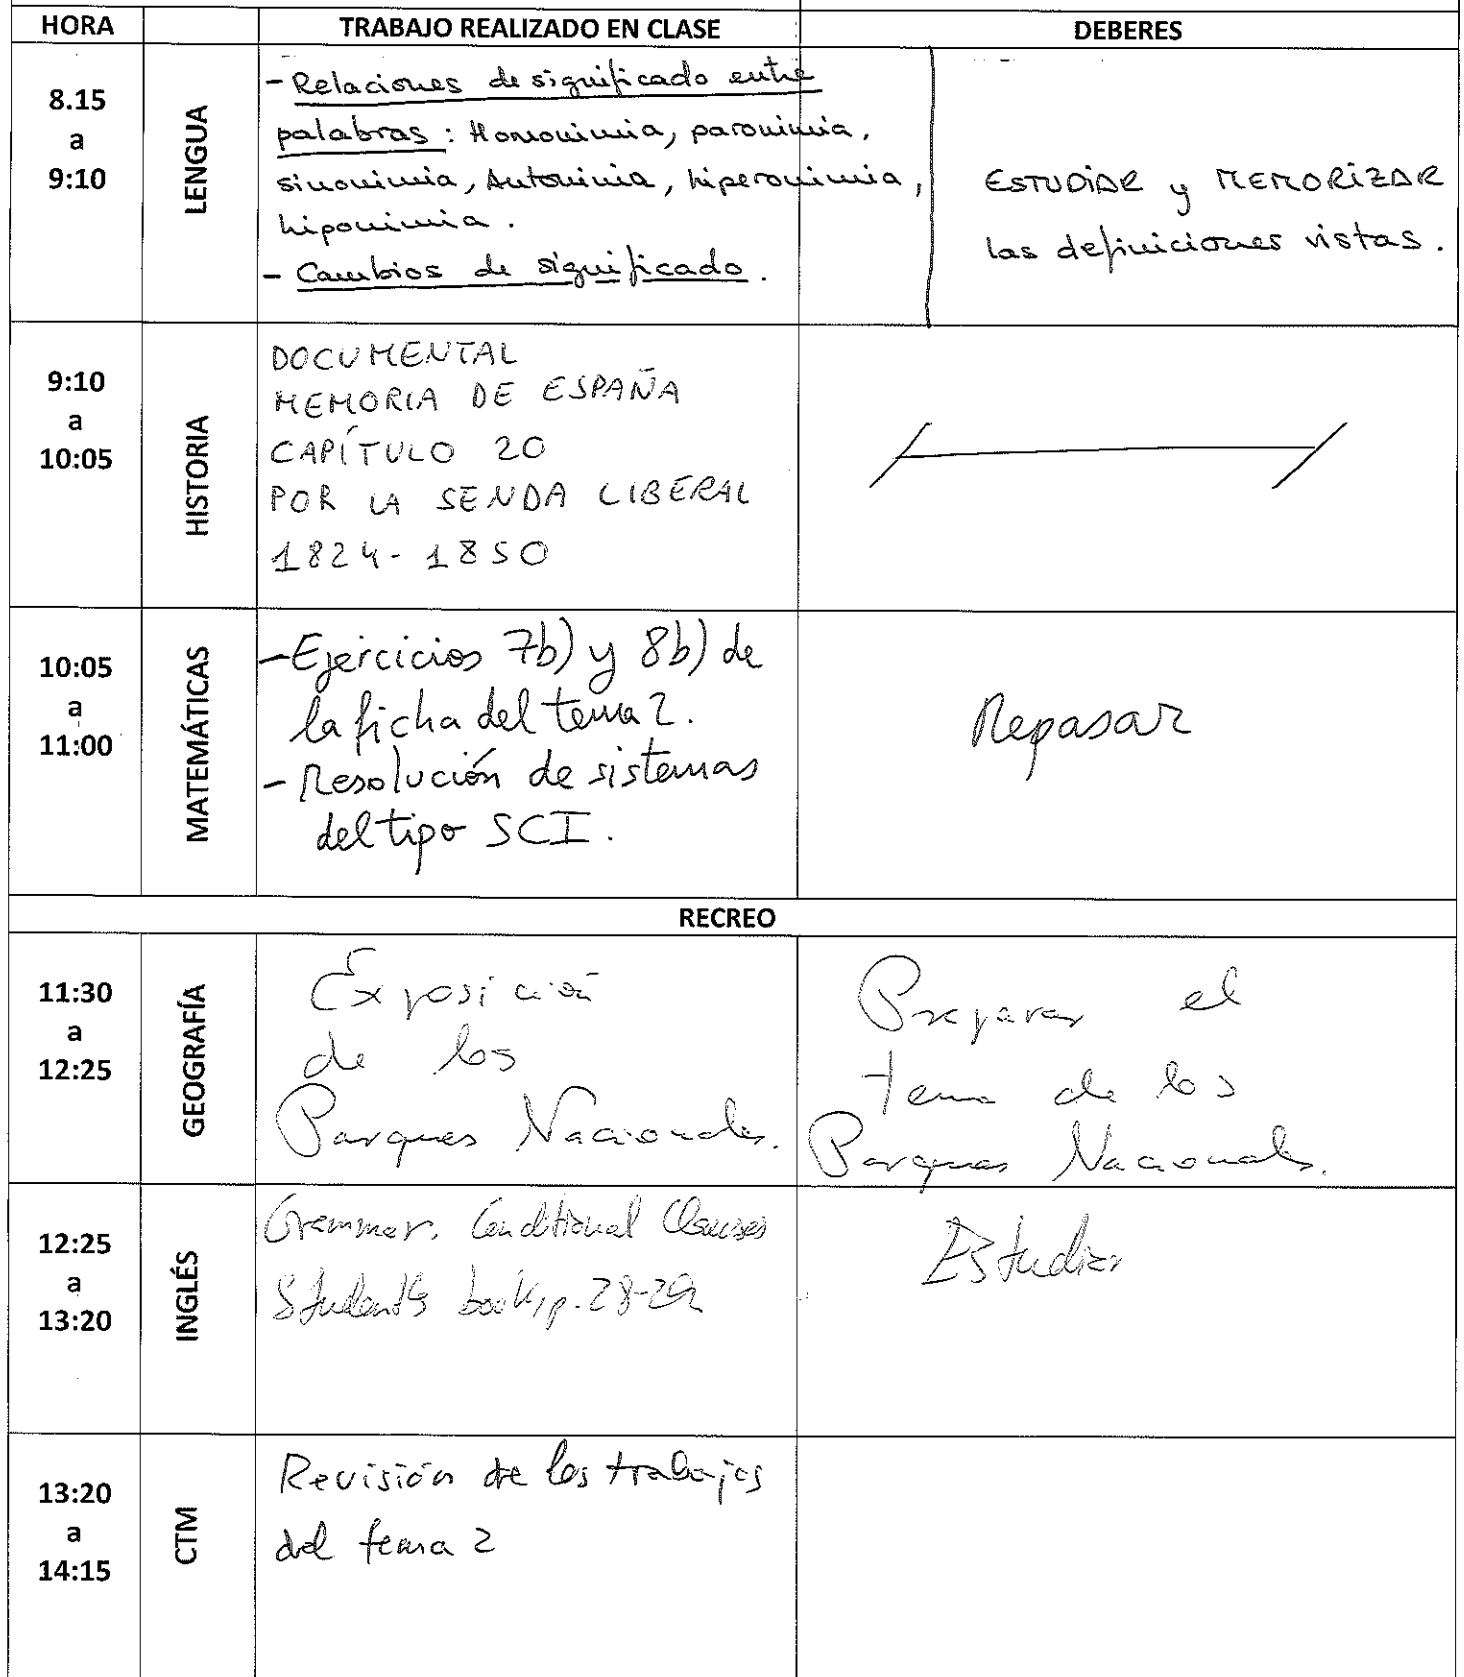 HORA TRABAJO REALIZADO EN CLASE DEBERES
8.15
a
9:10
LENGUA
- Relaciones de significado entre
palabras: Homonimia, paronimia,
sinonimia, Antonimia, hiperonimia,
hiponimia.
- Cambios de significado.
ESTUDIAR y MEMORIZAR
las definiciones vistas.
9:10
a
10:05
HISTORIA
DOCUMENTAL
MEMORIA DE ESPAÑA
CAPÍTULO 20
POR LA SENDA LIBERAL
1824-1850
10:05
a
11:00
MATEMÁTICAS
- Ejercicios 7b) y 8b) de
la ficha del tema 2.
- Resolución de sistemas
del tipo SCI.
Repasar
RECREO
11:30
a
12:25
GEOGRAFÍA
Exposición
de los
Parques Nacionales.
Preparar el
tema de los
Parques Nacionales.
12:25
a
13:20
INGLÉS
Grammar. Conditional Clauses
Student's book, p. 28-29
Estudiar
13:20
a
14:15
CTM
Revisión de los trabajos
del tema 2